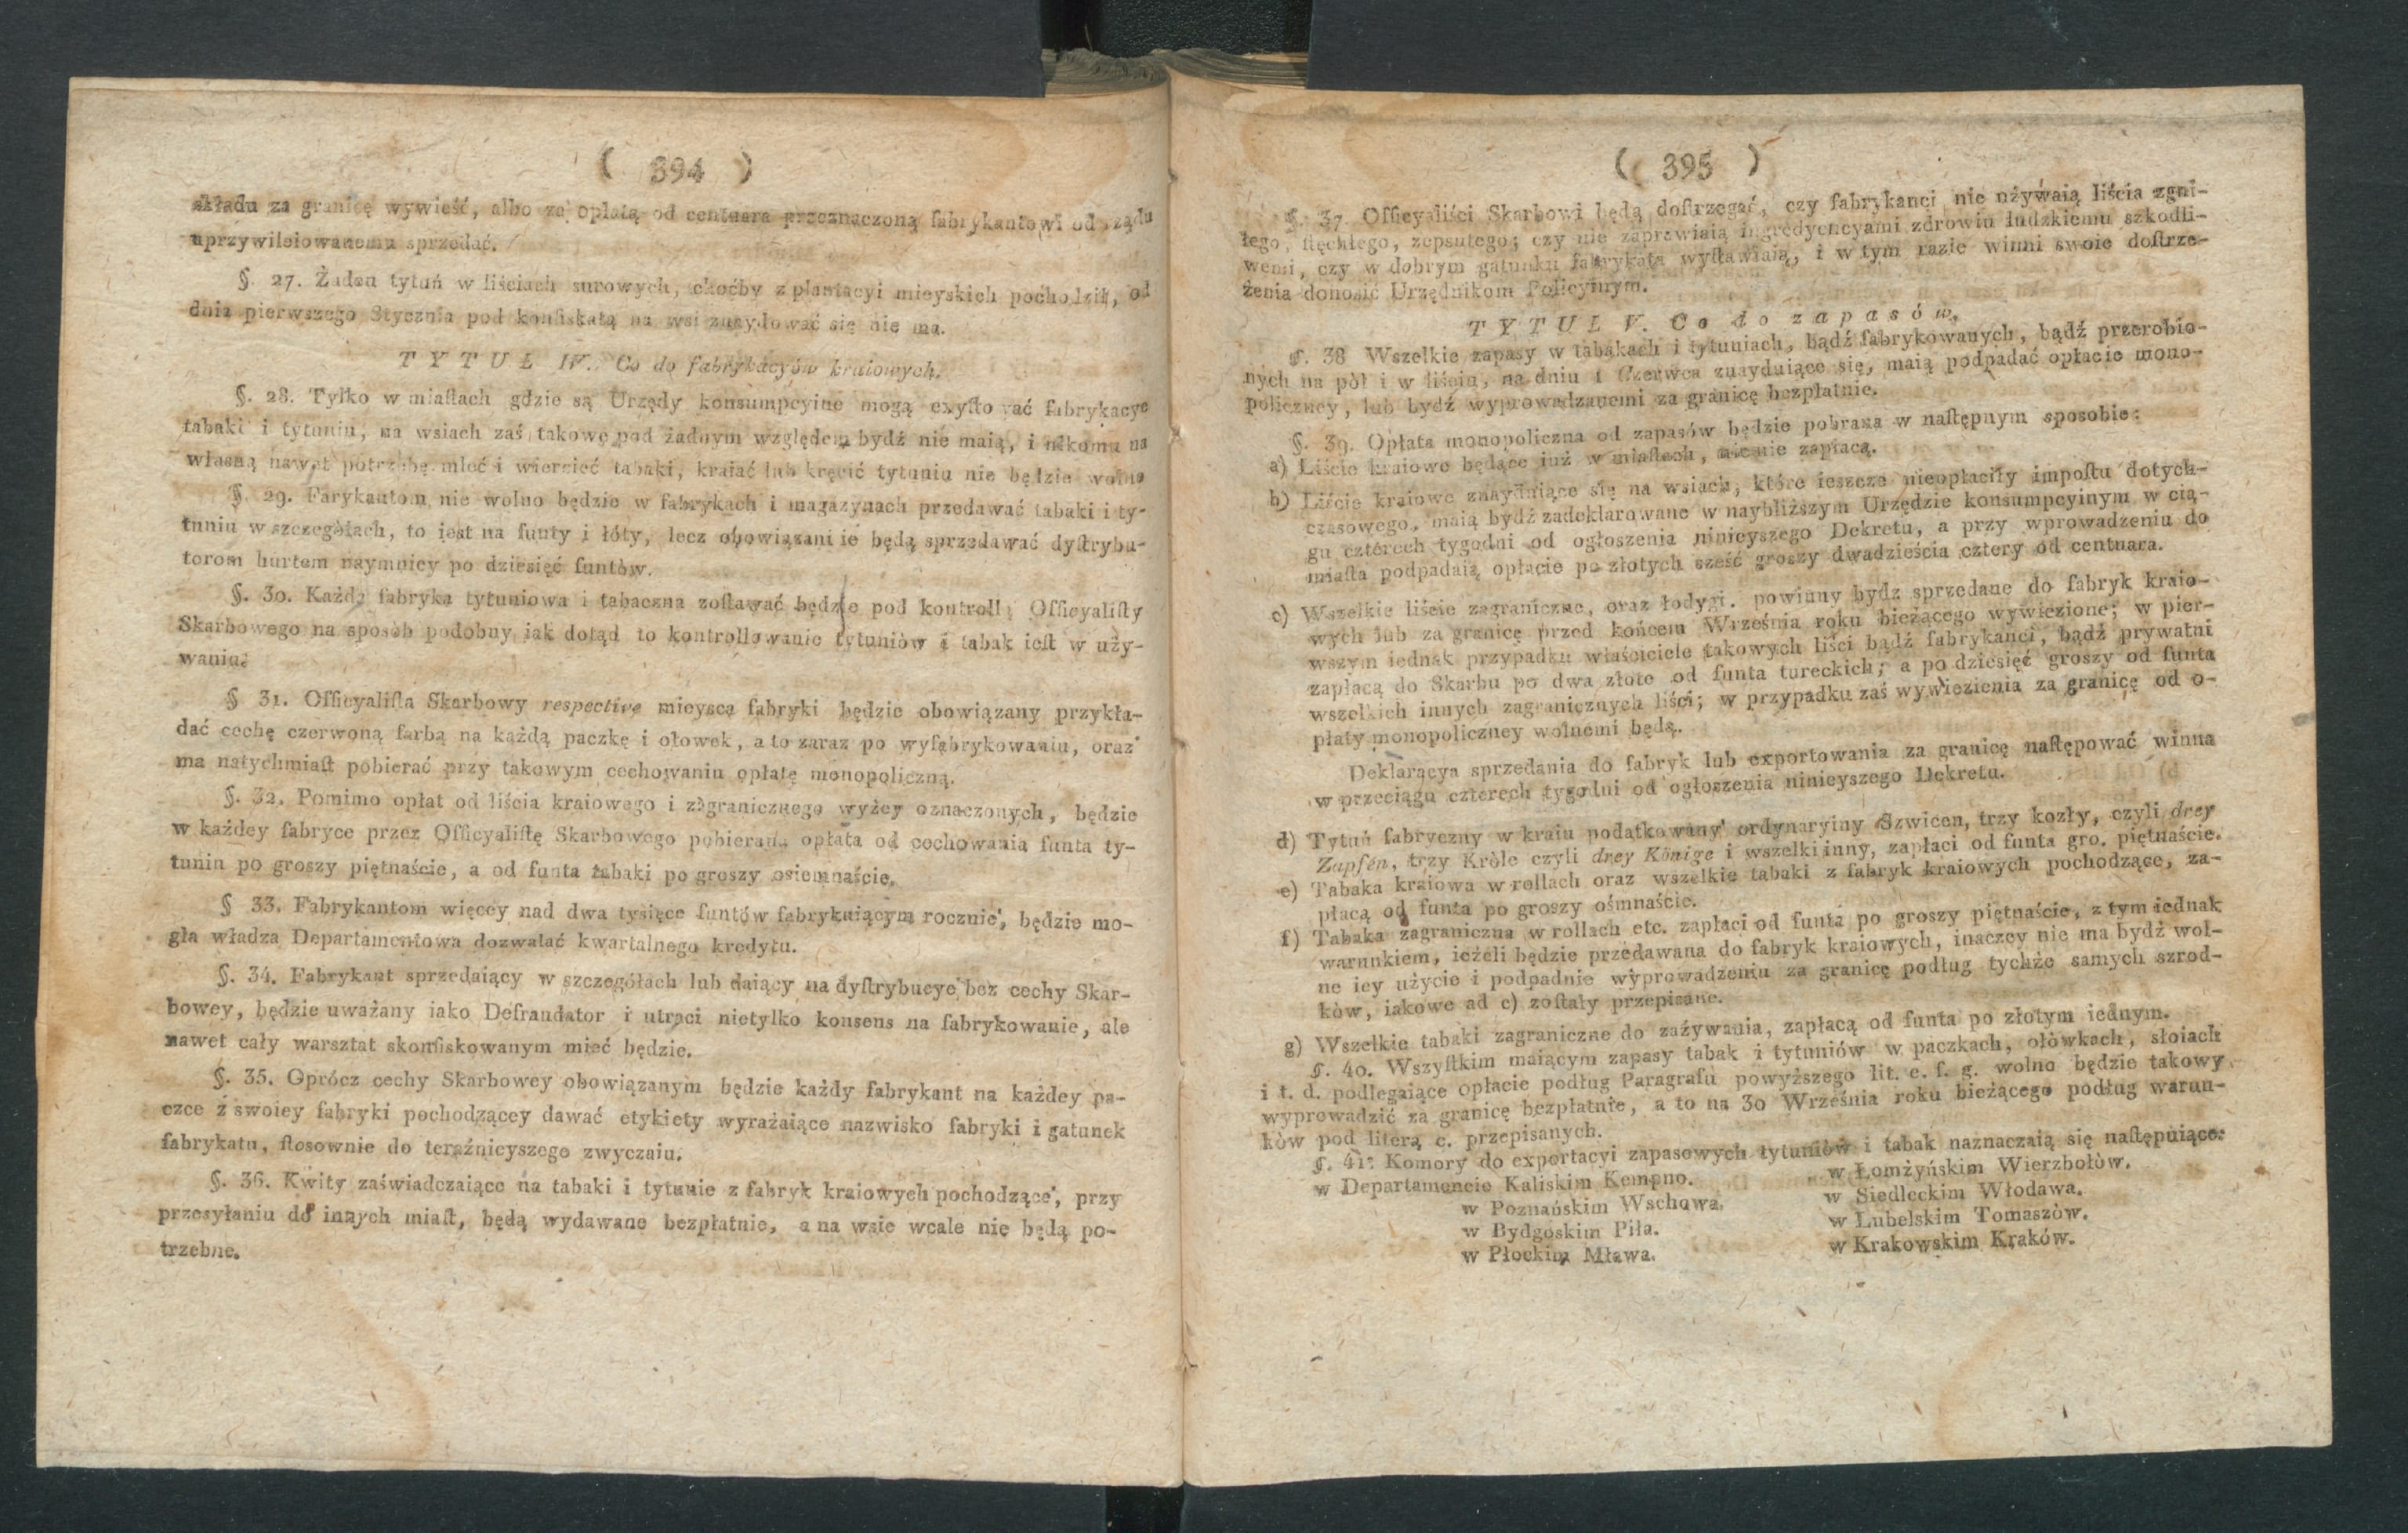 ( 394 )
składu za granicę wywieść, albo za opłatą od centnara przeznaczoną fabrykantowi od rządu
uprzywileiowanemu sprzedać.
§. 27. Żaden tytuń w liściach surowych, choćby z plantacyi mieyskich pochodził, od
dnia pierwszego Stycznia pod konfiskatą na wsi znaydować się nie ma.
TYTUŁ IV. Co do fabrykacyów kraiowych.
§. 28. Tylko w miaſtach gdzie są Urzędy konsumpcyine mogą exyſtować fabrykacye
tabaki i tytuniu, na wsiach zaś takowe pod żadnym względem bydź nie maią, i nikomu na
własną nawet potrzebę mleć i wiercieć tabaki, kraiać lub kręcić tytuniu nie będzie wolno
§. 29. Farykantom nie wolno będzie w fabrykach i magazynach przedawać tabaki i ty-
tuniu w szczegółach, to ieſt na funty i łóty, lecz obowiązani ie będą sprzedawać dyſtrybu-
torom hurtem naymnicy po dziesięć funtów.
§. 30. Każda fabryka tytuniowa i tabaczna zoſtawać będzie pod kontrollą Officyaliſty
Skarbowego na sposób podobny iak dotąd to kontrollowanie tytuniów i tabak ieſt w uży-
waniu.
§ 31. Officyaliſta Skarbowy respective mieysca fabryki będzie obowiązany przykła-
dać cechę czerwoną farbą na każdą paczkę i ołowek, a to zaraz po wyfabrykowaniu, oraz
ma natychmiaſt pobierać przy takowym cechowaniu opłatę monopoliczną.
§. 32. Pomimo opłat od liścia kraiowego i zagranicznego wyżey oznaczonych, będzie
w każdey fabryce przez Officyaliſtę Skarbowego pobierana opłata od cechowania funta ty-
tuniu po groszy piętnaście, a od funta tabaki po groszy osiemnaście.
§ 33. Fabrykantom więcey nad dwa tysięce funtów fabrykuiącym rocznie, będzie mo-
gła władza Departamentowa dozwalać kwartalnego kredytu.
§. 34. Fabrykant sprzedaiący w szczegółach lub daiący na dyſtrybucye bez cechy Skar-
bowey, będzie uważany iako Defraudator i utraci nietylko konsens na fabrykowanie, ale
nawet cały warsztat skonfiskowanym mieć będzie.
§. 35. Oprócz cechy Skarbowey obowiązanym będzie każdy fabrykant na każdey pa-
czce z swoiey fabryki pochodzącey dawać etykiety wyrażaiące nazwisko fabryki i gatunek
fabrykatu, ſtosownie do teraźnieyszego zwyczaiu.
§. 36. Kwity zaświadczaiące na tabaki i tytunie z fabryk kraiowych pochodzące, przy
przesyłaniu do innych miaſt, będą wydawane bezpłatnie, a na wsie wcale nie będą po-
trzebne.
( 395 )
§. 37. Officyaliści Skarbowi będą doſtrzegać, czy fabrykanci nie używaią liścia zgni-
łego, ſtęchłego, zepsutego; czy nie zaprawiaią ingredyencyami zdrowiu ludzkiemu szkodli-
wemi, czy w dobrym gatunku fabrykata wyſtawiaią, i w tym razie winni swoie doſtrze-
żenia donosić Urzędnikom Policyinym.
TYTUŁ V. Co do zapasów.
§. 38 Wszelkie zapasy w tabakach i tytuniach, bądź fabrykowanych, bądź przerobio-
nych na pół i w liściu, na dniu 1 Czerwca znayduiące się, maią podpadać opłacie mono-
policzney, lub bydź wyprowadzanemi za granicę bezpłatnie.
§. 39. Opłata monopoliczna od zapasów będzie pobrana w naſtępnym sposobie:
a) Liście kraiowe będące już w miaſtach, nic nie zapłacą.
b) Liście kraiowe znayduiące się na wsiach, które ieszcze nieopłaciły impoſtu dotych-
czasowego, maią bydź zadeklarowane w naybliższym Urzędzie konsumpcyinym w cią-
gu czterech tygodni od ogłoszenia ninieyszego Dekretu, a przy wprowadzeniu do
miaſta podpadaią opłacie po złotych sześć groszy dwadzieścia cztery od centnara.
c) Wszelkie liście zagraniczne, oraz łodygi. powinny bydź sprzedane do fabryk kraio-
wych lub za granicę przed końcem Września roku bieżącego wywiezione; w pier-
wszym iednak przypadku właściciele takowych liści bądź fabrykanci, bądź prywatni
zapłacą do Skarbu po dwa złote od funta tureckich; a po dziesięć groszy od funta
wszelkich innych zagranicznych liści; w przypadku zaś wywiezienia za granicę od o-
płaty monopoliczney wolnemi będą.
Deklaracya sprzedania do fabryk lub exportowania za granicę naſtępować winna
w przeciągu czterech tygodni od ogłoszenia ninieyszego Dekretu.
d) Tytuń fabryczny w kraiu podatkowany ordynaryiny Szwicen, trzy kozły, czyli drey
Zapfen, trzy Króle czyli drey Könige i wszelki inny, zapłaci od funta gro. piętnaście.
e) Tabaka kraiowa w rollach oraz wszelkie tabaki z fabryk kraiowych pochodzące, za-
płacą od funta po groszy ośmnaście.
f) Tabaka zagraniczna w rollach etc. zapłaci od funta po groszy piętnaście, z tym iednak
warunkiem, ieżeli będzie przedawana do fabryk kraiowych, inaczey nie ma bydź wol-
ne iey użycie i podpadnie wyprowadzeniu za granicę podług tychże samych szrod-
ków, iakowe ad c) zoſtały przepisane.
g) Wszelkie tabaki zagraniczne do zażywania, zapłacą od funta po złotym iednym.
§. 40. Wszyſtkim maiącym zapasy tabak i tytuniów w paczkach, ołówkach, słoiach
i t. d. podlegaiące opłacie podług Paragrafu powyższego lit. e. f. g. wolno będzie takowy
wyprowadzić za granicę bezpłatnie, a to na 30 Września roku bieżącego podług warun-
ków pod literą c. przepisanych.
§. 41. Komory do exportacyi zapasowych tytuniów i tabak naznaczaią się naſtępuiące:
w Departamencie Kaliskim Kempno.
w Poznańskim Wschowa.
w Bydgoskim Piła.
w Płockim Mława.
w Łomżyńskim Wierzbołów.
w Siedleckim Włodawa.
w Lubelskim Tomaszów.
w Krakowskim Kraków.